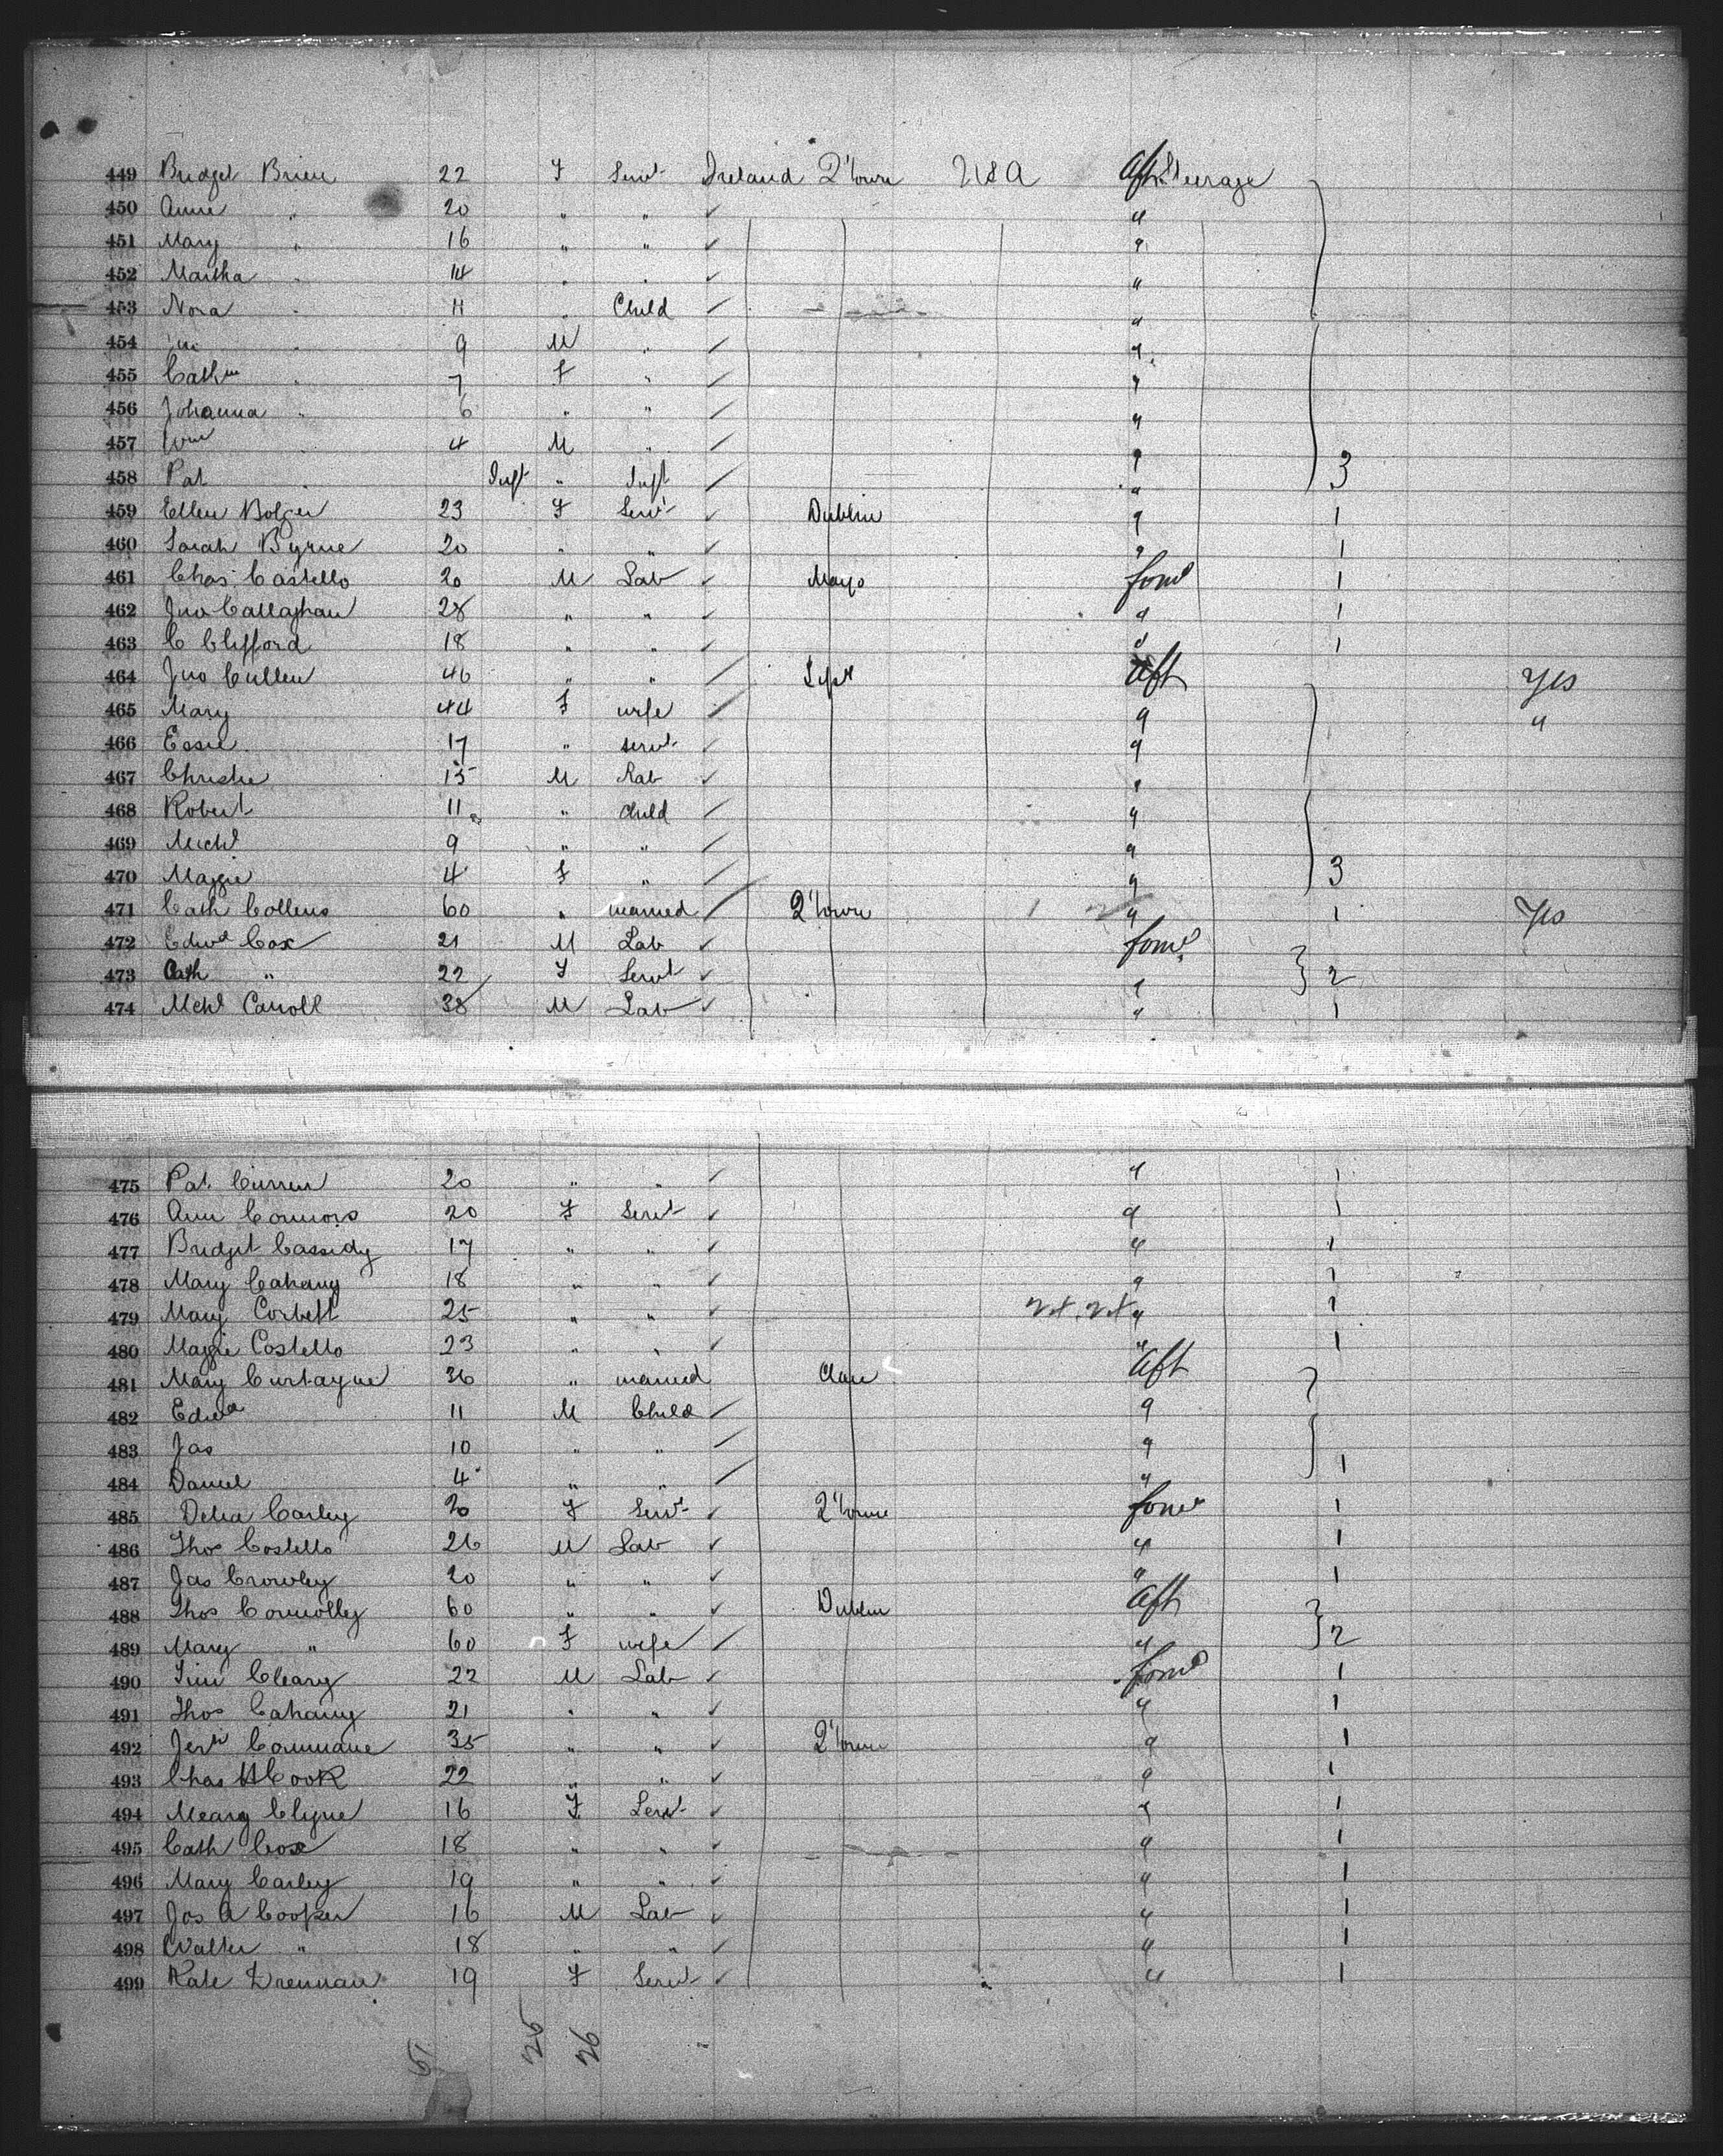 449 Bridget Brien 22 F Servt Ireland Q'town USA Aft Steerage
450 Anne " 20 " " ✓ "
451 Mary " 16 " " ✓ "
452 Martha " 14 " " ✓ "
453 Nora " 11 " Child / "
454 " 9 M " / "
455 Cathne " 7 F " / "
456 Johanna " 6 " " / "
457 Wm " 4 M " "
458 Pat " Inft " Inft / " 3
459 Ellen Bolger 23 F Servt ✓ Dublin " 1
460 Sarah Byrne 20 " " ✓ " 1
461 Chas. Castello 20 M Lab ✓ Mayo forwd 1
462 Jno Callaghan 28 " " ✓ " 1
463 C Clifford 18 " " ✓ " 1
464 Jno Cullen 46 " " / Aft Yes
465 Mary 44 F wife / " "
466 Essie 17 " servt ✓ "
467 Christie 15 M Lab ✓ "
468 Robert 11 " child / "
469 Michl 9 " " / "
470 Maggie 4 F " / " 3
471 Cath Collens 60 " married / Q'town " 1 Yes
472 Edwd Cox 21 M Lab ✓ forwd
473 Cath " 22 F Servt ✓ " 2
474 Mchl Carroll 38 M Lab ✓ " 1
475 Pat. Curren 20 " " ✓ " 1
476 Ann Connors 20 F Servt ✓ " 1
477 Bridget Cassidy 17 " " ✓ " 1
478 Mary Cahany 18 " " ✓ " 1
479 Mary Corbett 25 " " ✓ " 1
480 Maggie Costello 23 " " ✓ " 1
481 Mary Curtayne 36 " married Clare Aft
482 Edwd 11 M Child / "
483 Jas 10 " " / "
484 Daniel 4 " " / " 1
485 Delia Carley 20 F Servt ✓ Q'town forwd 1
486 Thos Costello 26 M Lab ✓ " 1
487 Jas Crowley 20 " " ✓ " 1
488 Thos Connolly 60 " " ✓ Dublin Aft
489 Mary " 60 F wife / " 2
490 Tim Cleary 22 M Lab ✓ forwd 1
491 Thos Cahany 21 " " ✓ " 1
492 Jerh Commane 35 " " ✓ Q'town " 1
493 Chas H Cook 22 " " ✓ " 1
494 Meary Clyne 16 F Servt ✓ " 1
495 Cath Cox 18 " " ✓ " 1
496 Mary Carley 19 " " ✓ " 1
497 Jos A Cooper 16 M Lab ✓ " 1
498 Walter " 18 " " ✓ " 1
499 Kate Drennan 19 F Servt ✓ " 1
51 25 26